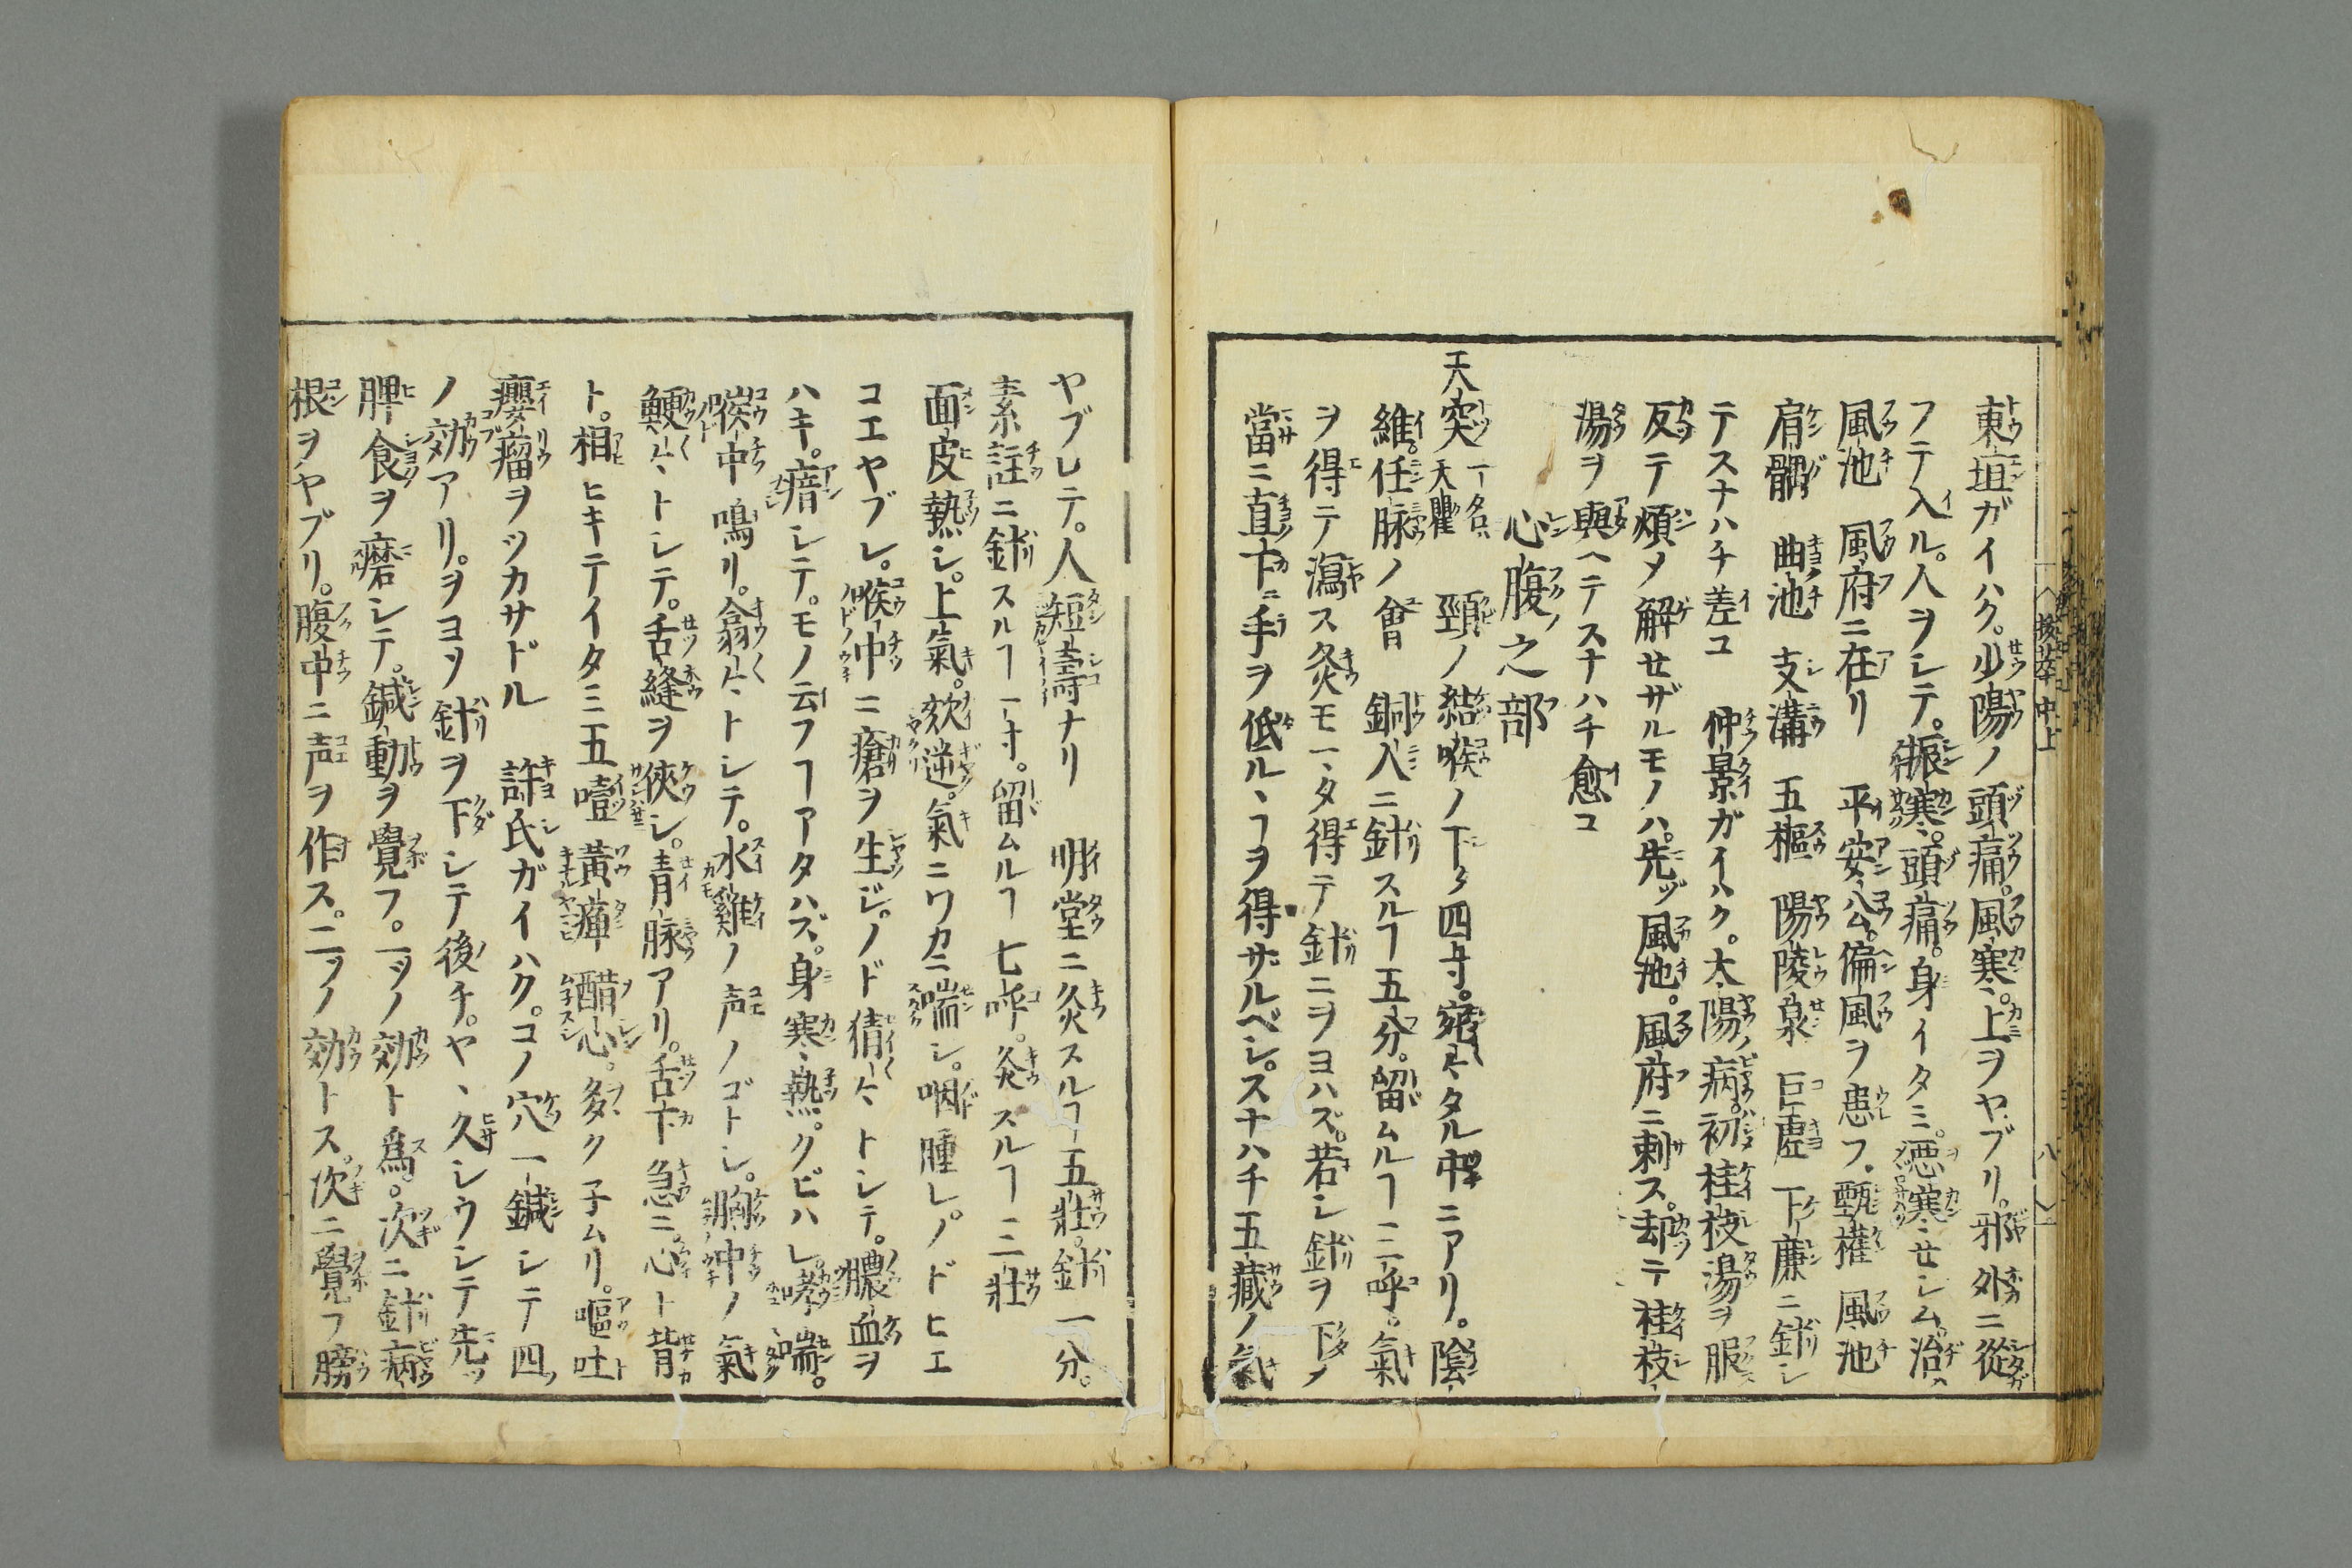 東垣ガイハク。少陽ノ頭痛。風寒。上ヲヤブリ。邪外ニ從
フテ入ル。人ヲシテ。振寒。頭痛。身イタミ。悪寒セシム。治
風池 風府ニ在リ 平安公。偏風ヲ患フ。甄權 風池
肩髃 曲池 支溝 五樞 陽陵泉 巨虚 下廉ニ針シ
テスナハチ差コ 仲景ガイハク。太陽ノ病。初桂枝湯ヲ服
反テ煩メ解せザルモノハ。先ヅ風池。風府ニ刺ス。却テ桂枝
湯ヲ與ヘテスナハチ愈コ
心腹之部
天突 一名天瞿 頸ノ結喉ノ下タ四寸。宛宛タル中ニアリ。陰
維。任脉ノ會 銅人ニ針スルヿ五分。留ムルヿ三呼。氣
ヲ得テ瀉ス灸モ一タ得テ針ニヲヨハズ。若シ針ヲ下ノ
當ニ直下ニ手ヲ低ル、ヿヲ得サルベシ。スナハチ五藏ノ氣
ヤブレテ。人短壽ナリ 明堂ニ灸スルヿ五壯。針一分。
素註ニ針スルヿ一寸。留ムルヿ七呼。灸スルヿ三壯
面皮熱シ。上氣。欬逆。氣ニワカニ喘シ。咽腫レ。ノドヒエ
コエヤブレ。喉中ニ瘡ヲ生ジ。ノド猜々トシテ。膿血ヲ
ハキ。瘖シテ。モノ云フヿアタハズ。身寒熱。クビハレ。哮喘。
喉中鳴リ。翕々トシテ。水雞ノ声ノゴトシ。胸中ノ氣
鯁々トシテ。舌縫ヲ俠シ。青脉アリ。舌下急ニ。心ト背
ト。相ヒキテイタミ五噎 黃癉 醋心。多ク子ムリ。嘔吐
癭瘤ヲツカサドル 許氏ガイハク。コノ穴一鍼シテ四
ノ効アリ。ヲヨソ針ヲ下シテ後チ。ヤ、久シウシテ先ツ
脾食ヲ磨シテ。鍼動ヲ覺フ。一ヲノ効ト爲。次ニ針病
根ヲヤブリ。腹中ニ声ヲ作ス。二ヲノ効トス。次ニ覺フ膀